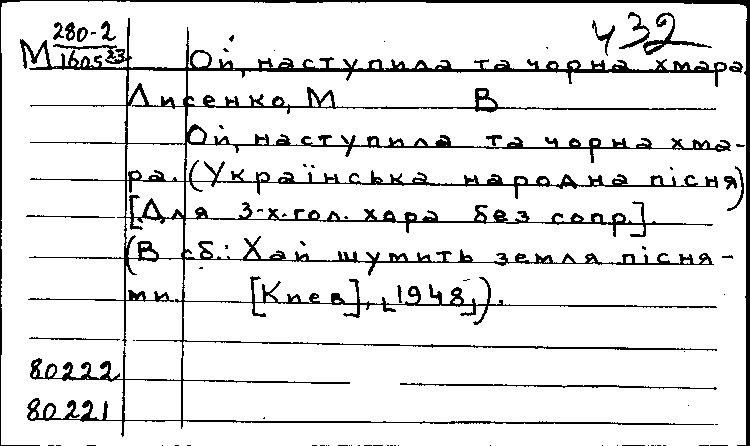 432
М 280-2
1605 23
Ой, наступила та чорна хмара.
Лисенко, М В
Ой, наступила та чорна хма-
ра. (Українська народна пісня)
[Для 3-х. гол. хора без сопр.].
(В сб.: Хай шумить земля пісня-
ми. [Киев], [1948]).
80222
80221